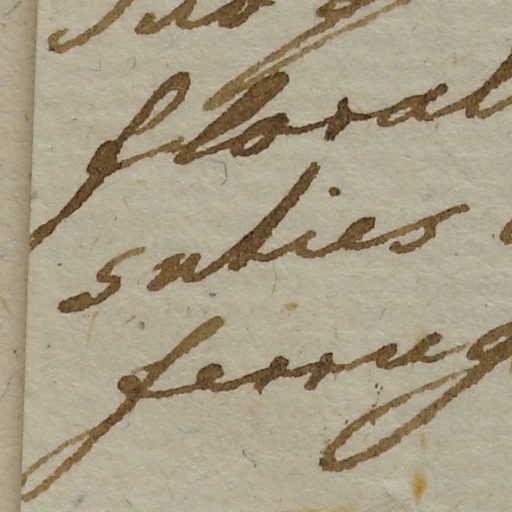 floral
suties
ferrug